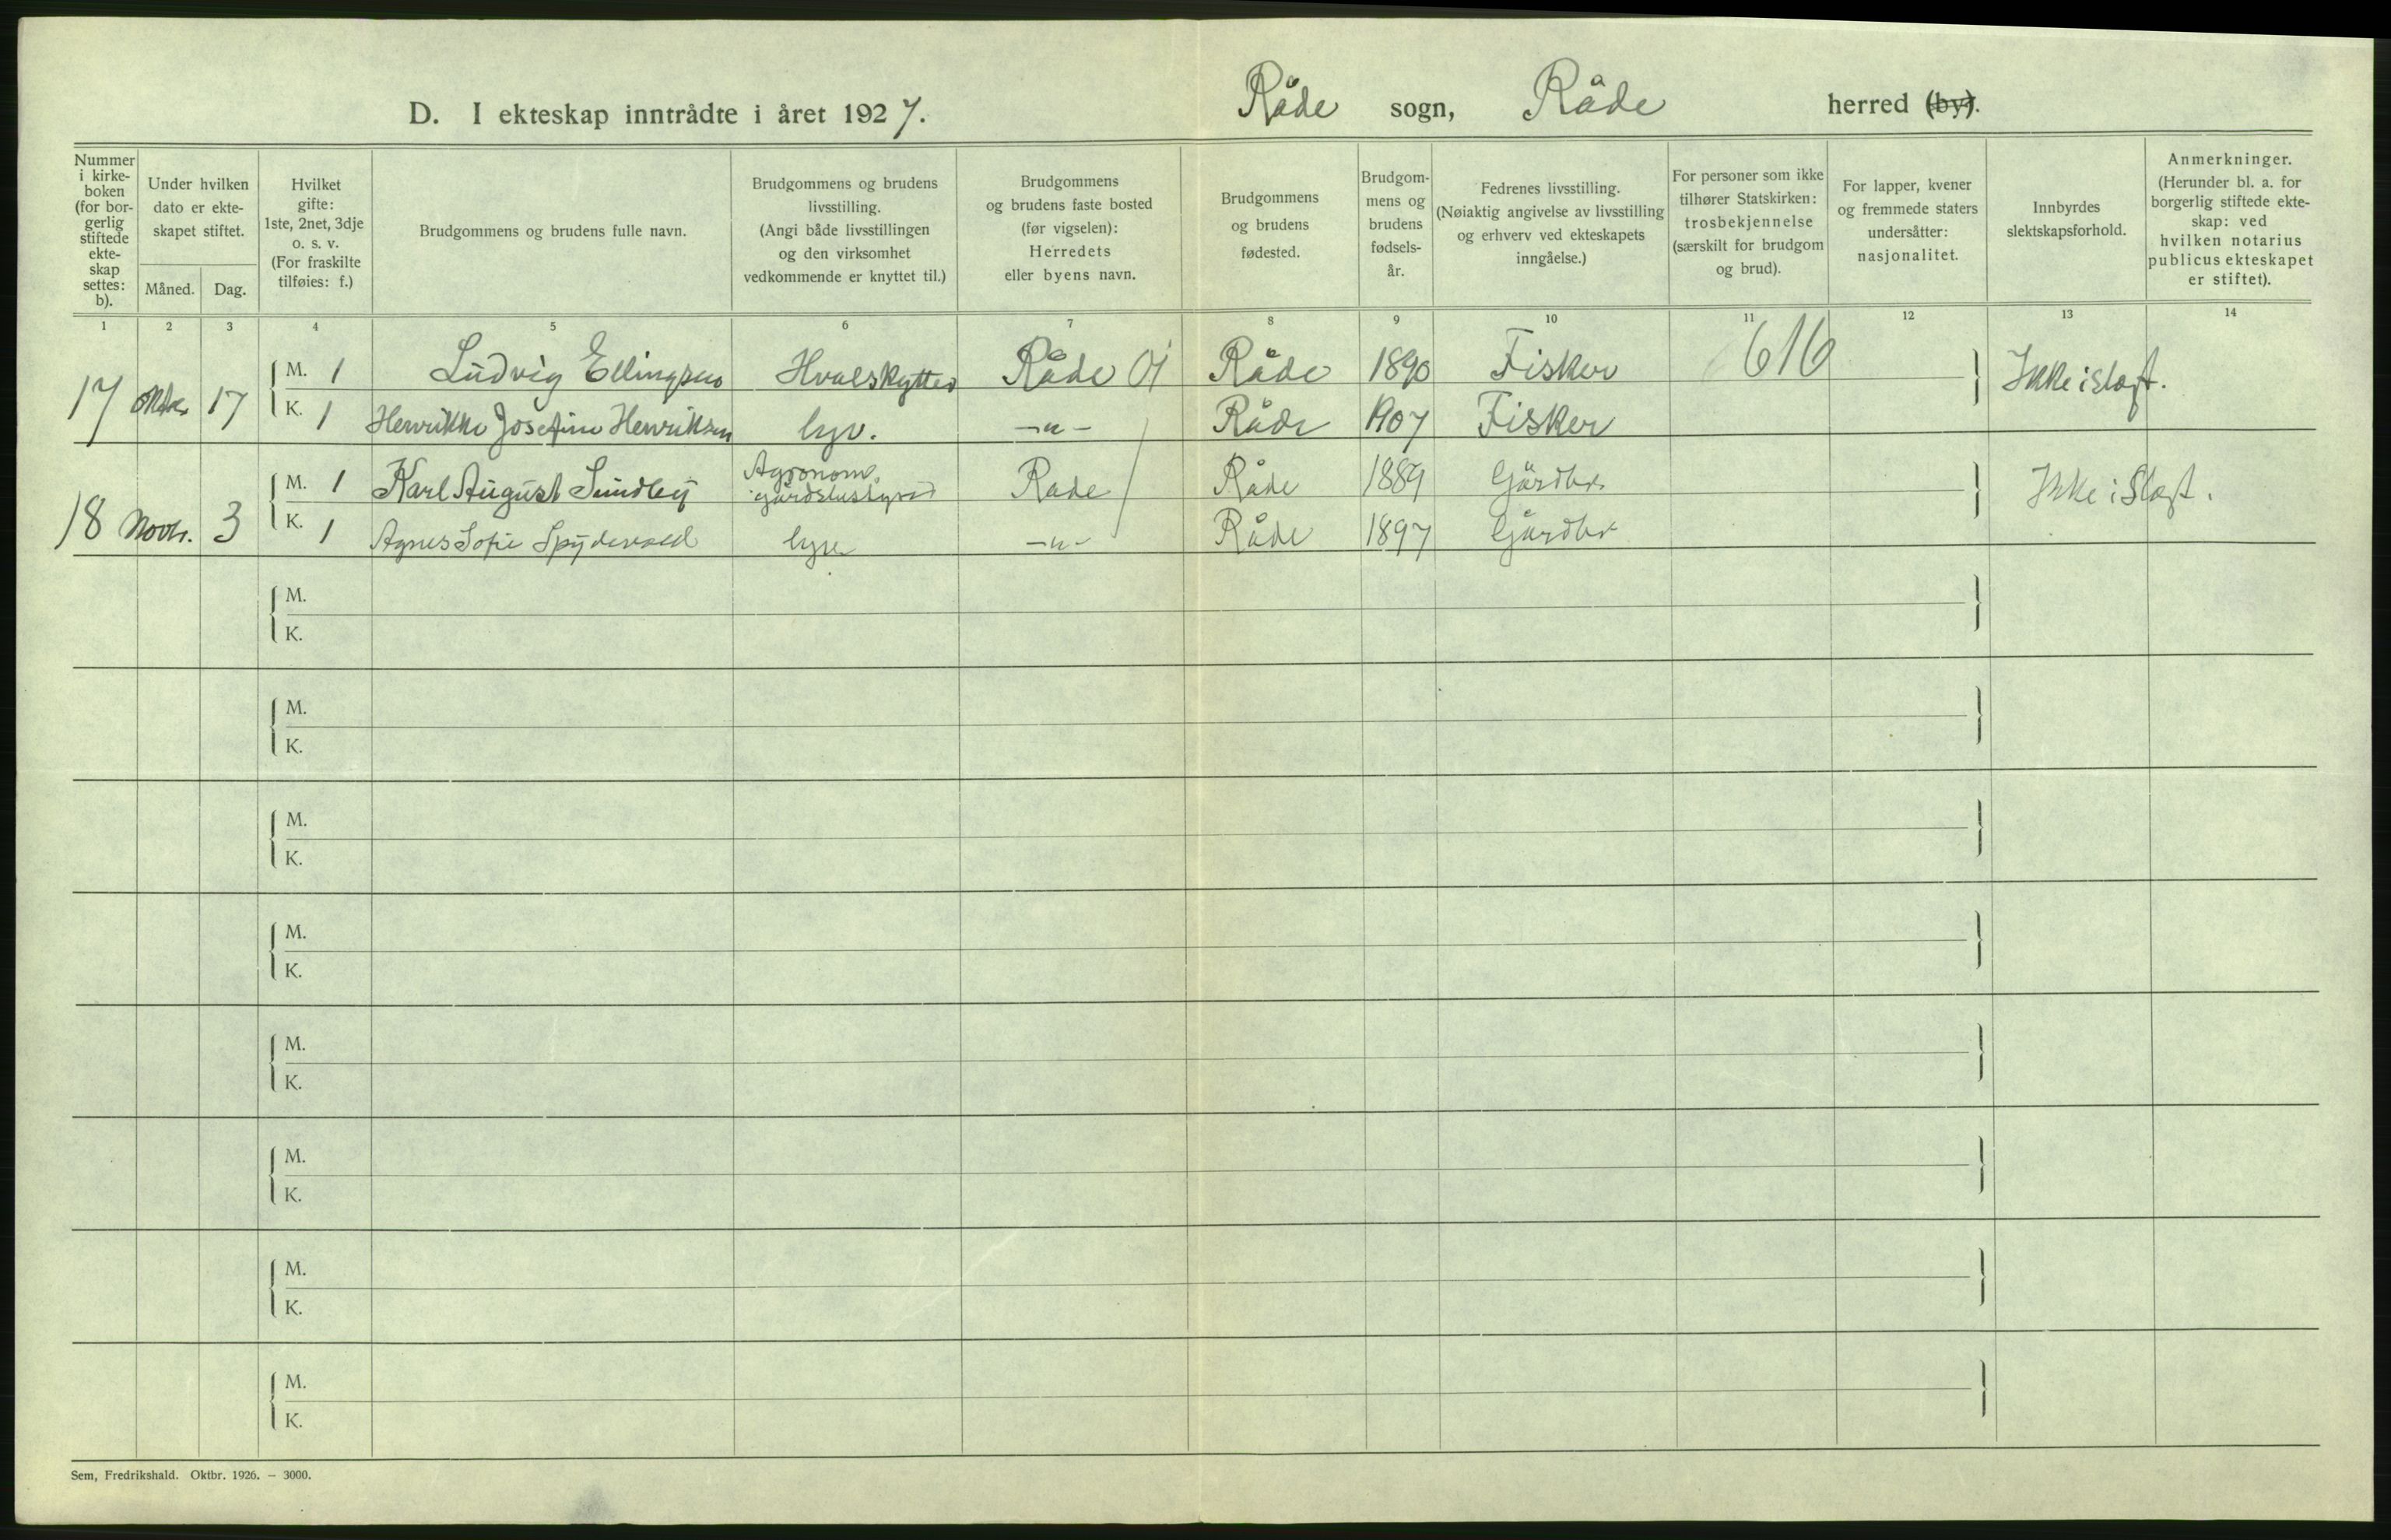 D. I ekteskap inntrådte i året 1927. Råde sogn, Råde herred (by).
Nummer i kirke-boken (for bor-gerlig stiftede ekte-skap settes: b).
Under hvilken dato er ekte-skapet stiftet.
Måned. Dag.
Hvilket gifte: 1ste, 2net, 3dje o. s. v. (For fraskilte tilføies: f.)
Brudgommens og brudens fulle navn.
Brudgommens og brudens livsstilling. (Angi både livsstillingen og den virksomhet vedkommende er knyttet til.)
Brudgommens og brudens faste bosted (før vigselen): Herredets eller byens navn.
Brudgommens og brudens fødested.
Brudgom-mens og brudens fødsels-år.
Fedrenes livsstilling. (Nøiaktig angivelse av livsstilling og erhverv ved ekteskapets inngåelse.)
For personer som ikke tilhører Statskirken: trosbekjennelse (særskilt for brudgom og brud).
For lapper, kvener og fremmede staters undersåtter: nasjonalitet.
Innbyrdes slektskapsforhold.
Anmerkninger. (Herunder bl. a. for borgerlig stiftede ekte-skap: ved hvilken notarius publicus ekteskapet er stiftet).
1 2 3 4 5 6 7 8 9 10 11 12 13 14
17 Oktbr. 17 M. 1 Ludvig Ellingsen Hvalskytter Råde Råde 1890 Fisker 616 Ikke i slegt.
K. 1 Henrikke Josefine Henriksen -"- Råde 1907 Fisker
18 Novbr. 3 M. 1 Karl August Sundby Agronom, gårdsbestyrer Råde Råde 1889 Gårdbr. Ikke i Slegt.
K. 1 Agnes Sofie Spydevold -"- Råde 1897 Gårdbr
M.
K.
M.
K.
M.
K.
M.
K.
M.
K.
M.
K.
M.
K.
M.
K.
Sem, Fredrikshald. Oktbr. 1926. — 3000.